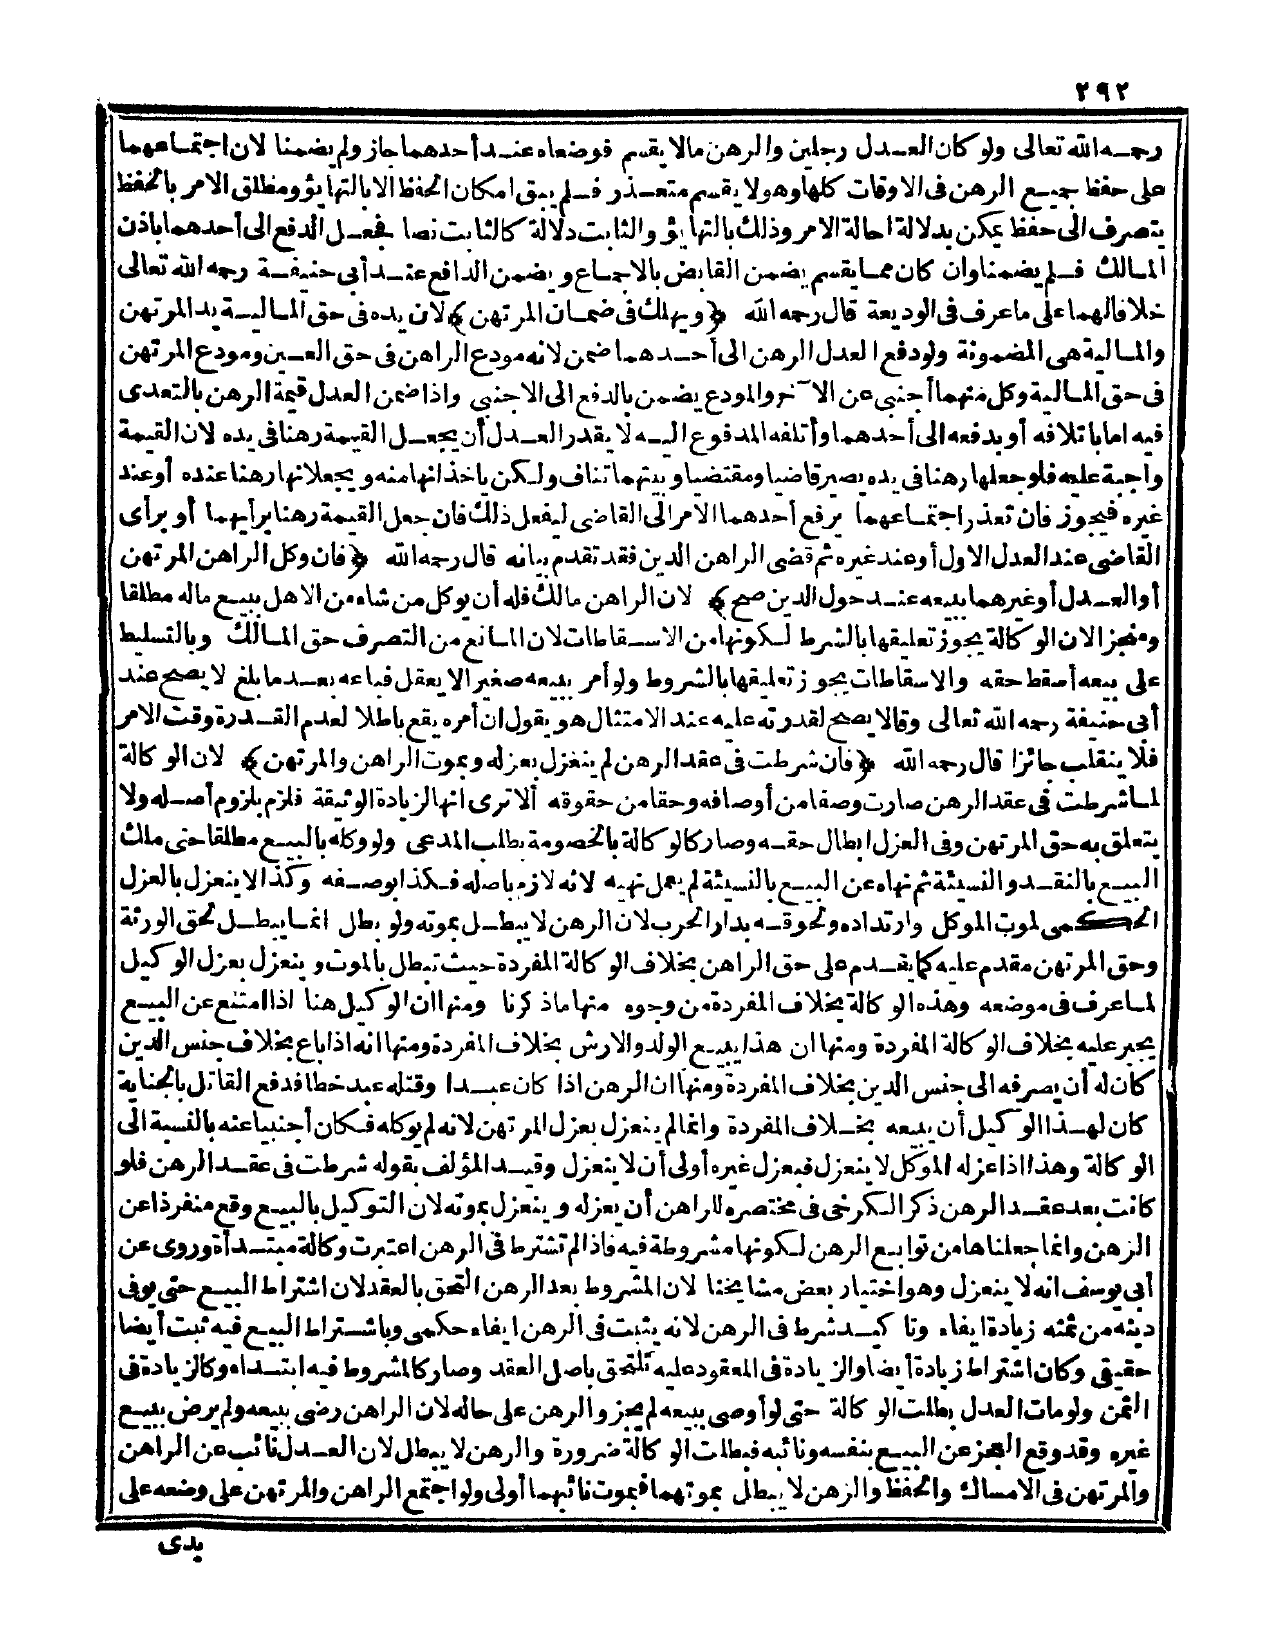 ٢٩٢
رحمه الله تعالى ولو كان العدل رجلين والرهن مالا يقسم فوضعاه عند أحدهما جاز ولم يضمنا لان اجتماعهما
على حفظ جميع الرهن فى الاوقات كلها وهو لا يقسم متعذر فلم يبق امكان الحفظ الا بالتهايؤ ومطلق الامر بالحفظ
يتصرف الى حفظ يمكن بدلالة احالة الامر وذلك بالتهايؤ والثابت دلالة كالثابت نصا فجعل الدفع الى أحدهما باذن
المالك فلم يضمنا وان كان مما يقسم يضمن القابض بالاجماع ويضمن الدافع عند أبى حنيفة رحمه الله تعالى
خلافا لهما على ما عرف فى الوديعة قال رحمه الله ﴿ويهلك فى ضمان المرتهن﴾ لان يده فى حق المالية يد المرتهن
والمالية هى المضمونة ولو دفع العدل الرهن الى أحدهما ضمن لانه مودع الراهن فى حق العين ومودع المرتهن
فى حق المالية وكل منهما أجنبى عن الآخر والمودع يضمن بالدفع الى الاجنبى واذا ضمن العدل قيمة الرهن بالتعدى
فيه اما باتلافه أو بدفعه الى أحدهما وأتلفه المدفوع اليه لا يقدر العدل أن يجعل القيمة رهنا فى يده لان القيمة
واجبة عليه فلو جعلها رهنا فى يده يصير قاضيا ومقتضيا وبينهما تناف ولكن ياخذانها منه ويجعلانها رهنا عنده أو عند
غيره فيجوز فان تعذر اجتماعهما يرفع أحدهما الامر الى القاضى ليفعل ذلك فان جعل القيمة رهنا برأيهما أو برأى
القاضى عند العدل الاول أو عند غيره ثم قضى الراهن الدين فقد تقدم بيانه قال رحمه الله ﴿فان وكل الراهن المرتهن
أو العدل أو غيرهما ببيعه عند حول الدين صح﴾ لان الراهن مالك فله أن يوكل من شاء من الاهل ببيع ماله مطلقا
ومنجزا لان الوكالة يجوز تعليقها بالشرط لكونها من الاسقاطات لان المانع من التصرف حق المالك وبالتسليط
على بيعه أسقط حقه والاسقاطات يجوز تعليقها بالشروط ولو أمر ببيعه صغيرا لا يعقل فباعه بعد ما بلغ لا يصح عند
أبى حنيفة رحمه الله تعالى وقالا يصح لقدرته عليه عند الامتثال هو يقول ان أمره يقع باطلا لعدم القدرة وقت الامر
فلا ينقلب جائزا قال رحمه الله ﴿فان شرطت فى عقد الرهن لم ينعزل بعزله وبموت الراهن والمرتهن﴾ لان الوكالة
لما شرطت فى عقد الرهن صارت وصفا من أوصافه وحقا من حقوقه ألا ترى انها لزيادة الوثيقة فلزم بلزوم أصله ولا
يتعلق به حق المرتهن وفى العزل ابطال حقه وصار كالوكالة بالخصومة بطلب المدعى ولو وكله بالبيع مطلقا حتى ملك
البيع بالنقد والنسيئة ثم نهاه عن البيع بالنسيئة لم يعمل نهيه لانه لازم باصله فكذا بوصفه وكذا لا ينعزل بالعزل
الحكمى لموت الموكل وارتداده ولحوقه بدار الحرب لان الرهن لا يبطل بموته ولو بطل انما يبطل لحق الورثة
وحق المرتهن مقدم عليه كما يقدم على حق الراهن بخلاف الوكالة المفردة حيث تبطل بالموت وينعزل بعزل الوكيل
لما عرف فى موضعه وهذه الوكالة بخلاف المفردة من وجوه منها ما ذكرنا ومنها ان الوكيل هنا اذا امتنع عن البيع
يجبر عليه بخلاف الوكالة المفردة ومنها ان هذا يبيع الولد والارش بخلاف المفردة ومنها انه اذا باع بخلاف جنس الدين
كان له أن يصرفه الى جنس الدين بخلاف المفردة ومنها ان الرهن اذا كان عبدا وقتله عبد خطا فدفع القاتل بالجناية
كان لهذا الوكيل أن يبيعه بخلاف المفردة وانما لم ينعزل بعزل المرتهن لانه لم يوكله فكان أجنبيا عنه بالنسبة الى
الوكالة وهذا اذا عزله الموكل لا ينعزل فبعزل غيره أولى أن لا ينعزل وقيد المؤلف بقوله شرطت فى عقد الرهن فلو
كانت بعد عقد الرهن ذكر الكرخى فى مختصره للراهن أن يعزله وينعزل بموته لان التوكيل بالبيع وقع منفردا عن
الرهن وانما جعلناها من توابع الرهن لكونها مشروطة فيه فاذا لم تشترط فى الرهن اعتبرت وكالة مبتدأة وروى عن
أبى يوسف انه لا ينعزل وهو اختيار بعض مشايخنا لان المشروط بعد الرهن التحق بالعقد لان اشتراط البيع حتى يوفى
دينه من ثمنه زيادة ايفاء وتاكيد شرط فى الرهن لانه يثبت فى الرهن ايفاء حكمى وباشتراط البيع فيه ثبت أيضا
حقيقى وكان اشتراط زيادة أيضا والزيادة فى المعقود عليه تلتحق باصل العقد وصار كالمشروط فيه ابتداء وكالزيادة فى
الثمن ولو مات العدل بطلت الوكالة حتى لو أوصى ببيعه لم يجز والرهن على حاله لان الراهن رضى ببيعه ولم يرض ببيع
غيره وقد وقع العجز عن البيع بنفسه ونائبه فبطلت الوكالة ضرورة والرهن لا يبطل لان العدل نائب عن الراهن
والمرتهن فى الامساك والحفظ والرهن لا يبطل بموتهما فبموت نائبهما أولى ولو اجتمع الراهن والمرتهن على وضعه على
يدى